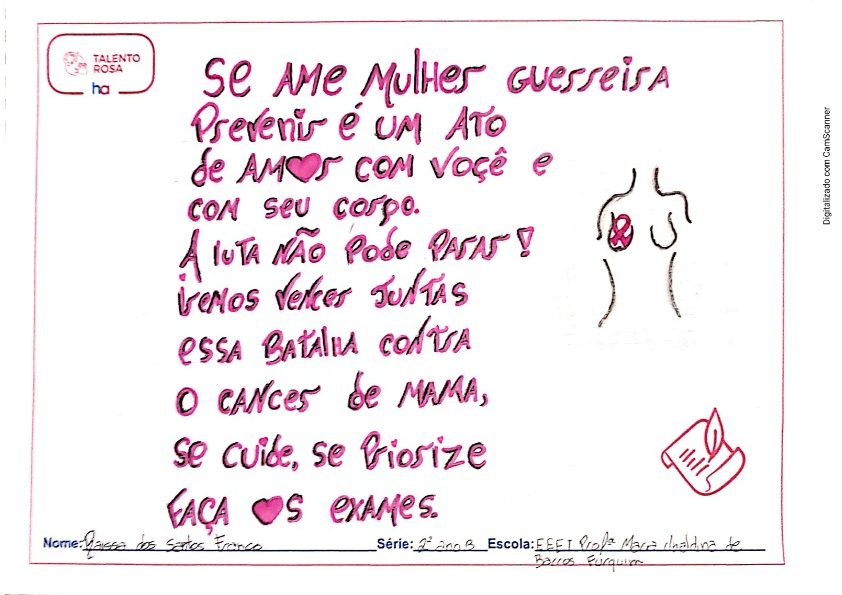 TALENTO
ROSA
ha
Se AME Mulher GUerreirA
Prevenir é UM ATO
de AM♥r COM Voçê e
COM seu corpo.
A luTA NÃO Pode PARAR!
iremos vencer JUNTAS
essA BATAlHA conTrA
O CANcer de MAMA,
Se cuide, se Priorize
FAÇA ♥s exAmes.
Nome: Raissa dos Santos Franco Série: 2º ano B Escola: EEEI Profª Maria de
Barros Fúrquim
Digitalizado com CamScanner